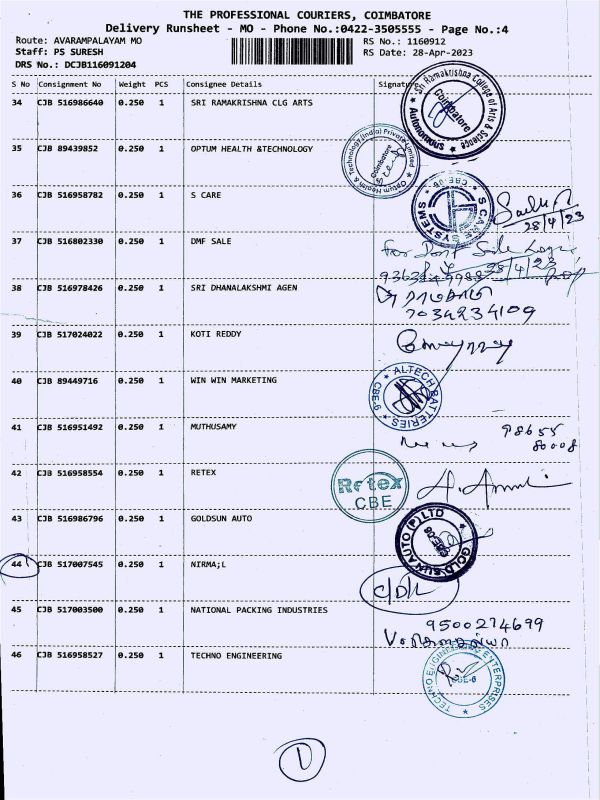 THE PROFESSIONAL COURIERS, COIMBATORE
Delivery Runsheet - MO - Phone No.:0422-3505555 - Page No.:4
Route: AVARAMPALAYAM MO RS No.: 1160912
Staff: PS SURESH RS Date: 28-Apr-2023
DRS No.: DCJB116091204
S No Consignment No Weight PCS Consignee Details Signature
34 CJB 516986640 0.250 1 SRI RAMAKRISHNA CLG ARTS
Sri Ramakrishna College of Arts & Science Autonomous Coimbatore
35 CJB 89439852 0.250 1 OPTUM HEALTH &TECHNOLOGY
Optum Health & Technology (India) Private Limited Coimbatore
36 CJB 516958782 0.250 1 S CARE
S CARE SYSTEMS CBE-06
28/4/23
37 CJB 516802330 0.250 1 DMF SALE
For
28/4/23
38 CJB 516978426 0.250 1 SRI DHANALAKSHMI AGEN
7034234109
39 CJB 517024022 0.250 1 KOTI REDDY
40 CJB 89449716 0.250 1 WIN WIN MARKETING
ALTECH BATTERIES CBE-6
41 CJB 516951492 0.250 1 MUTHUSAMY
98655
80008
42 CJB 516958554 0.250 1 RETEX
Retex
CBE
43 CJB 516986796 0.250 1 GOLDSUN AUTO
GOLD SUN AUTO (P) LTD CBE-06
44 CJB 517007545 0.250 1 NIRMA;L
45 CJB 517003500 0.250 1 NATIONAL PACKING INDUSTRIES
9500274699
46 CJB 516958527 0.250 1 TECHNO ENGINEERING
TECHNO ENGINEERING ENTERPRISES CBE-6
1